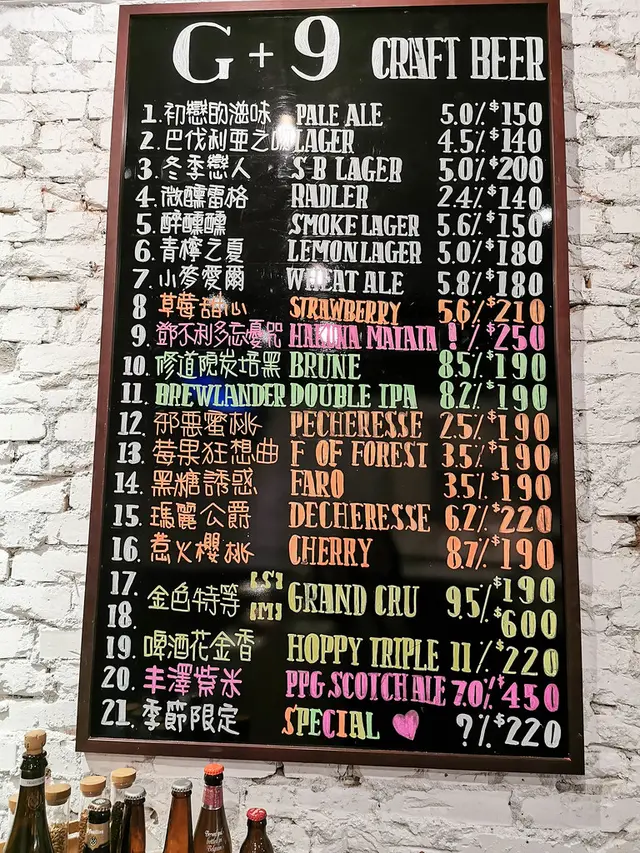 G+9 CRAFT BEER
1. 初戀的滋味 PALE ALE 5.0% $150
2. 巴伐利亞之 LAGER 4.5% $140
3. 冬季戀人 S B LAGER 5.0% $200
4. 微醺雷格 RADLER 2.4% $140
5. 醉醺醺 SMOKE LAGER 5.6% $150
6. 青檸之夏 LEMON LAGER 5.0% $180
7. 小麥愛爾 WHEAT ALE 5.8% $180
8 草莓甜心 STRAWBERRY 5.6% $210
9. 鄧不利多忘憂咒 HAKUNA MATATA ! % $250
10. 修道院炭焙黑 BRUNE 8.5% $190
11. BREWLANDER DOUBLE IPA 8.2% $190
12. 邪惡蜜桃 PECHERESSE 2.5% $190
13. 莓果狂想曲 F OF FOREST 3.5% $190
14. 黑糖誘惑 FARO 3.5% $190
15. 瑪麗公爵 DECHERESSE 6.2% $220
16. 惹火櫻桃 CHERRY 8.7% $190
17. 金色特等 [S] GRAND CRU 9.5% $190
18. [M] $600
19. 啤酒花金香 HOPPY TRIPLE 11% $220
20. 丰澤紫米 PPG.SCOTCH ALE 7.0% $450
21. 季節限定 SPECIAL ?% $220